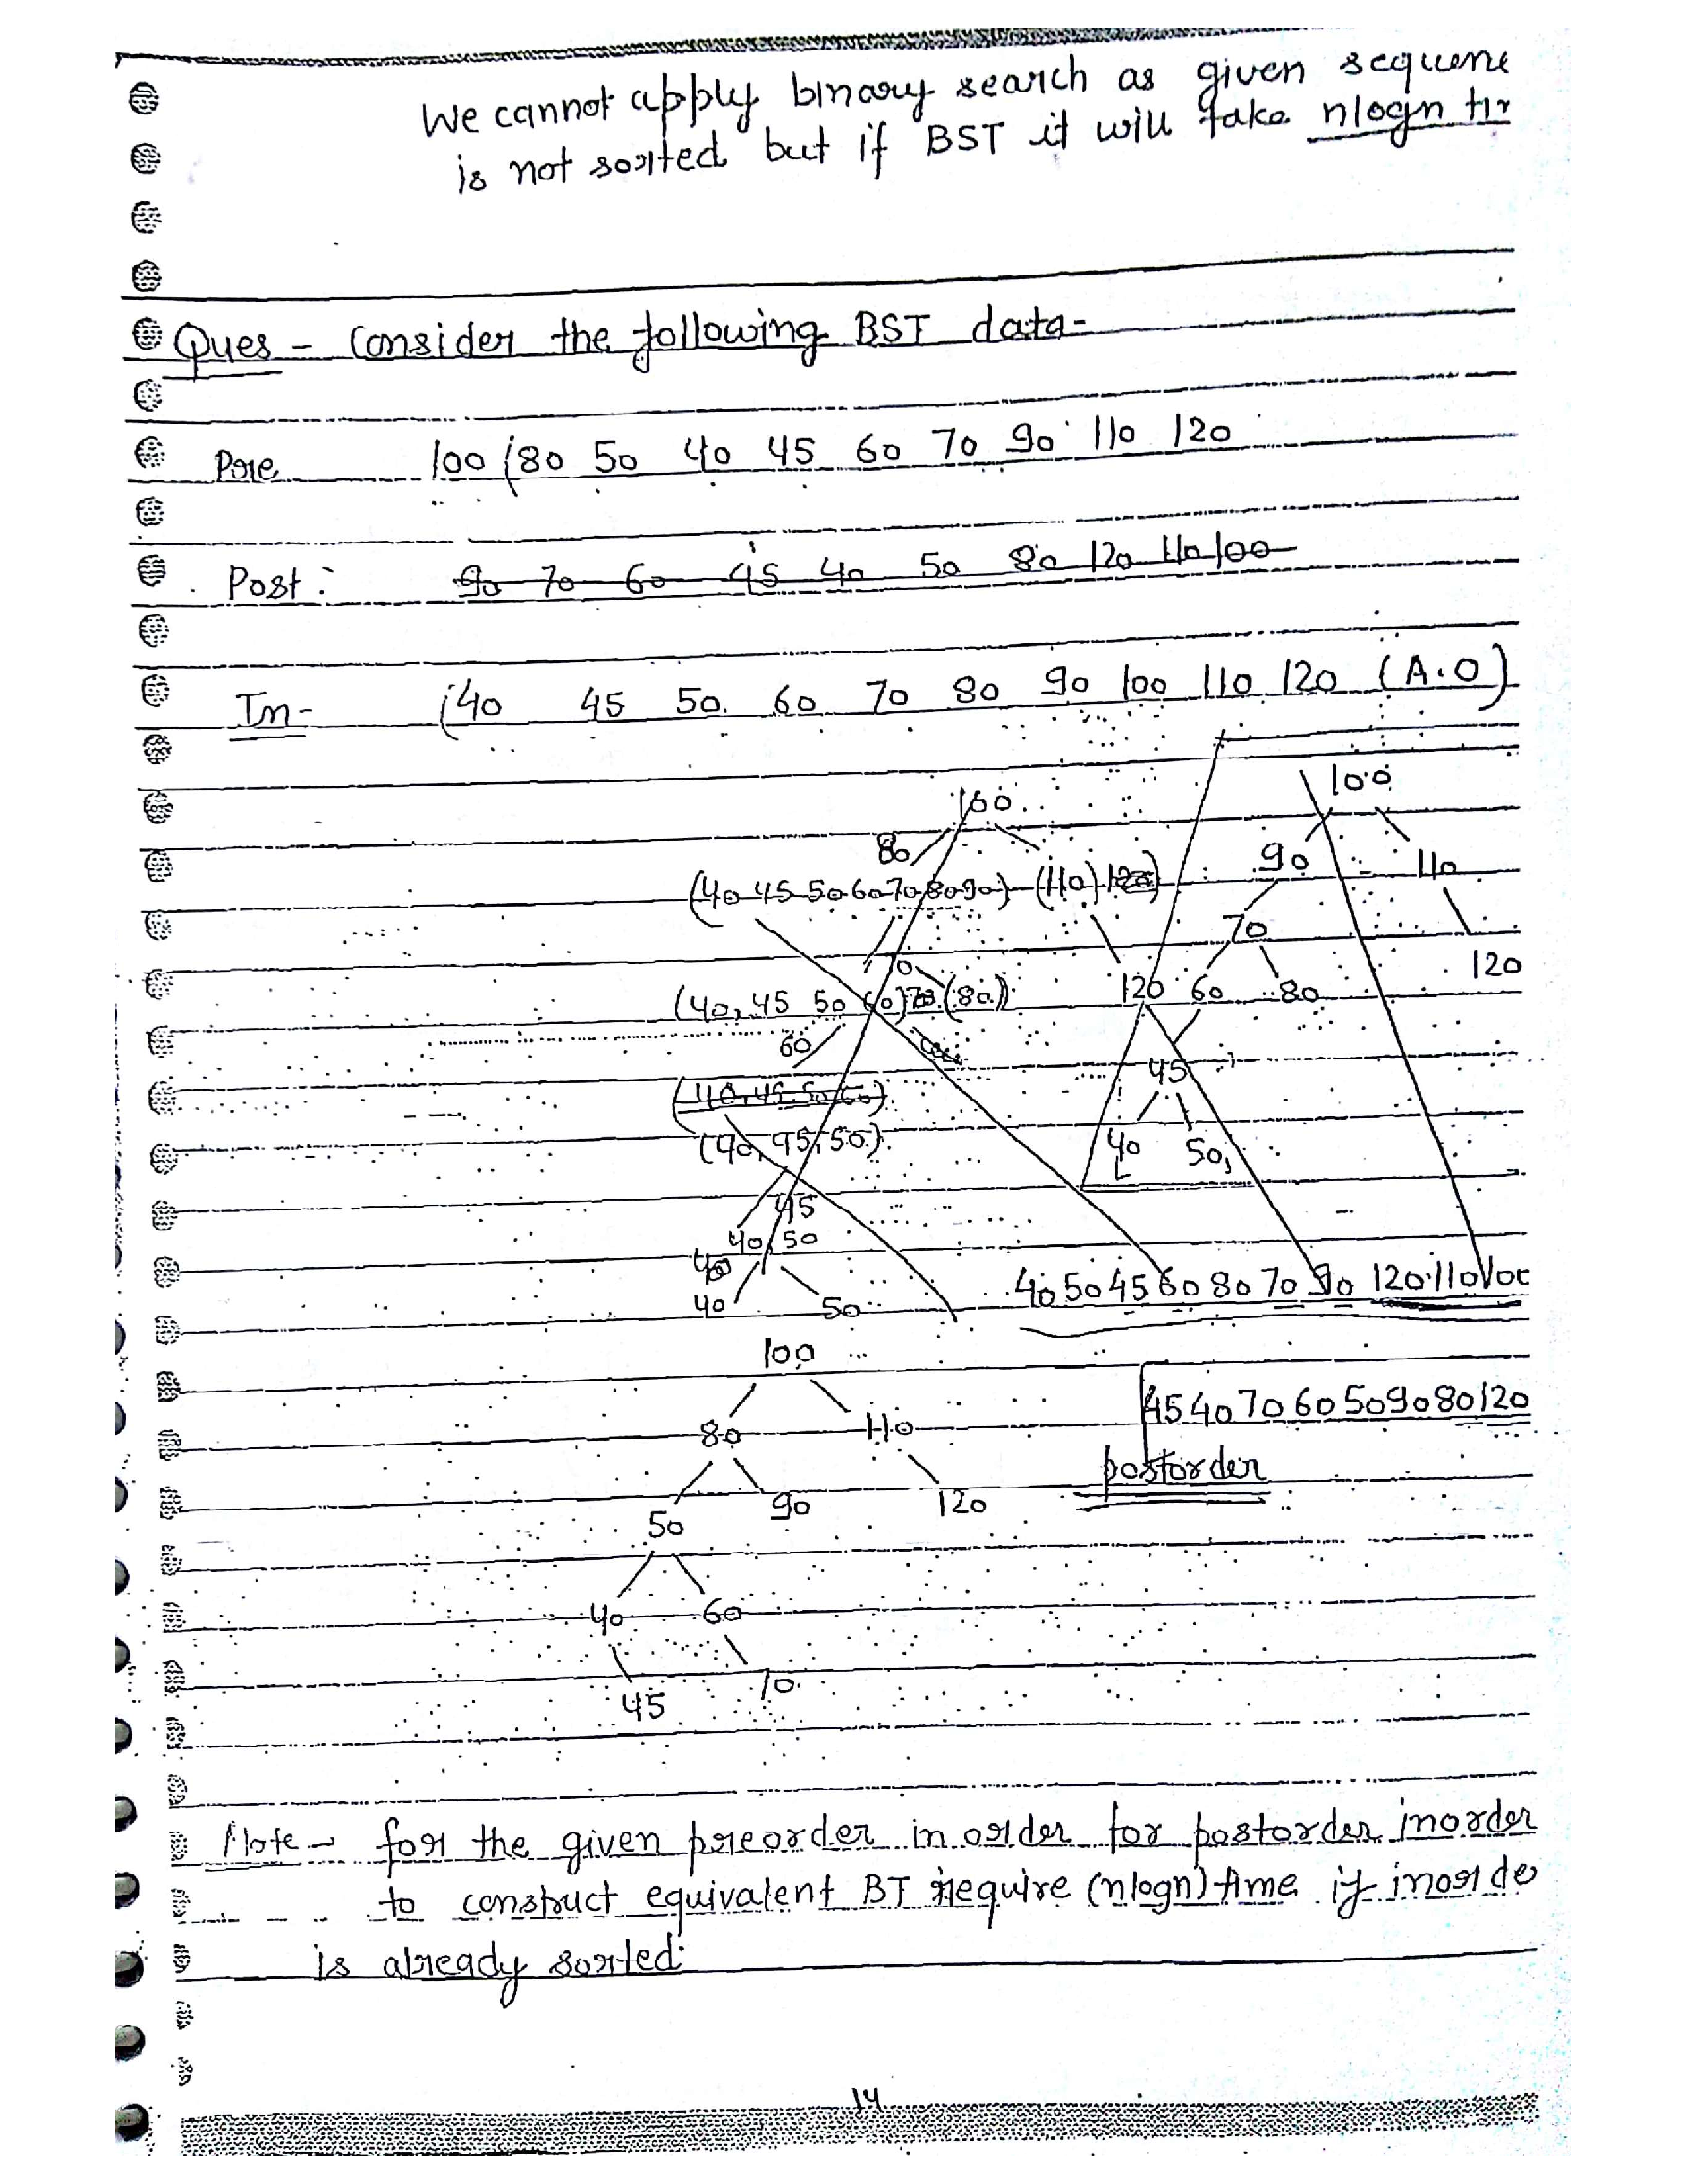 We cannot apply binary search as given sequene
is not sorted but if BST it will take nlogn
Ques - Consider the following BST data-
Pre 100 (80 50 40 45 60 70 90 110 120
Post: 90 70 60 45 40 50 80 120 110 100
In- (40 45 50. 60 70 80 90 100 110 120 (A.O)
100
100
80
90 110
(40 45 50 60 70 80 90) (110) 120
70
120
(40, 45 50 60) 70 (80)
120 60 80
60
45
(40, 45 50 60)
(40, 45, 50)
40 50
45
40, 50
40
40 50
40 50 45 60 80 70 90 120 110 100
100
45 40 70 60 50 90 80 120
80 110
postorder
50 90 120
40 60
45 70
Note → for the given preorder inorder for postorder inorder
to construct equivalent BT require (nlogn) time if inorde
is already sorted.
14